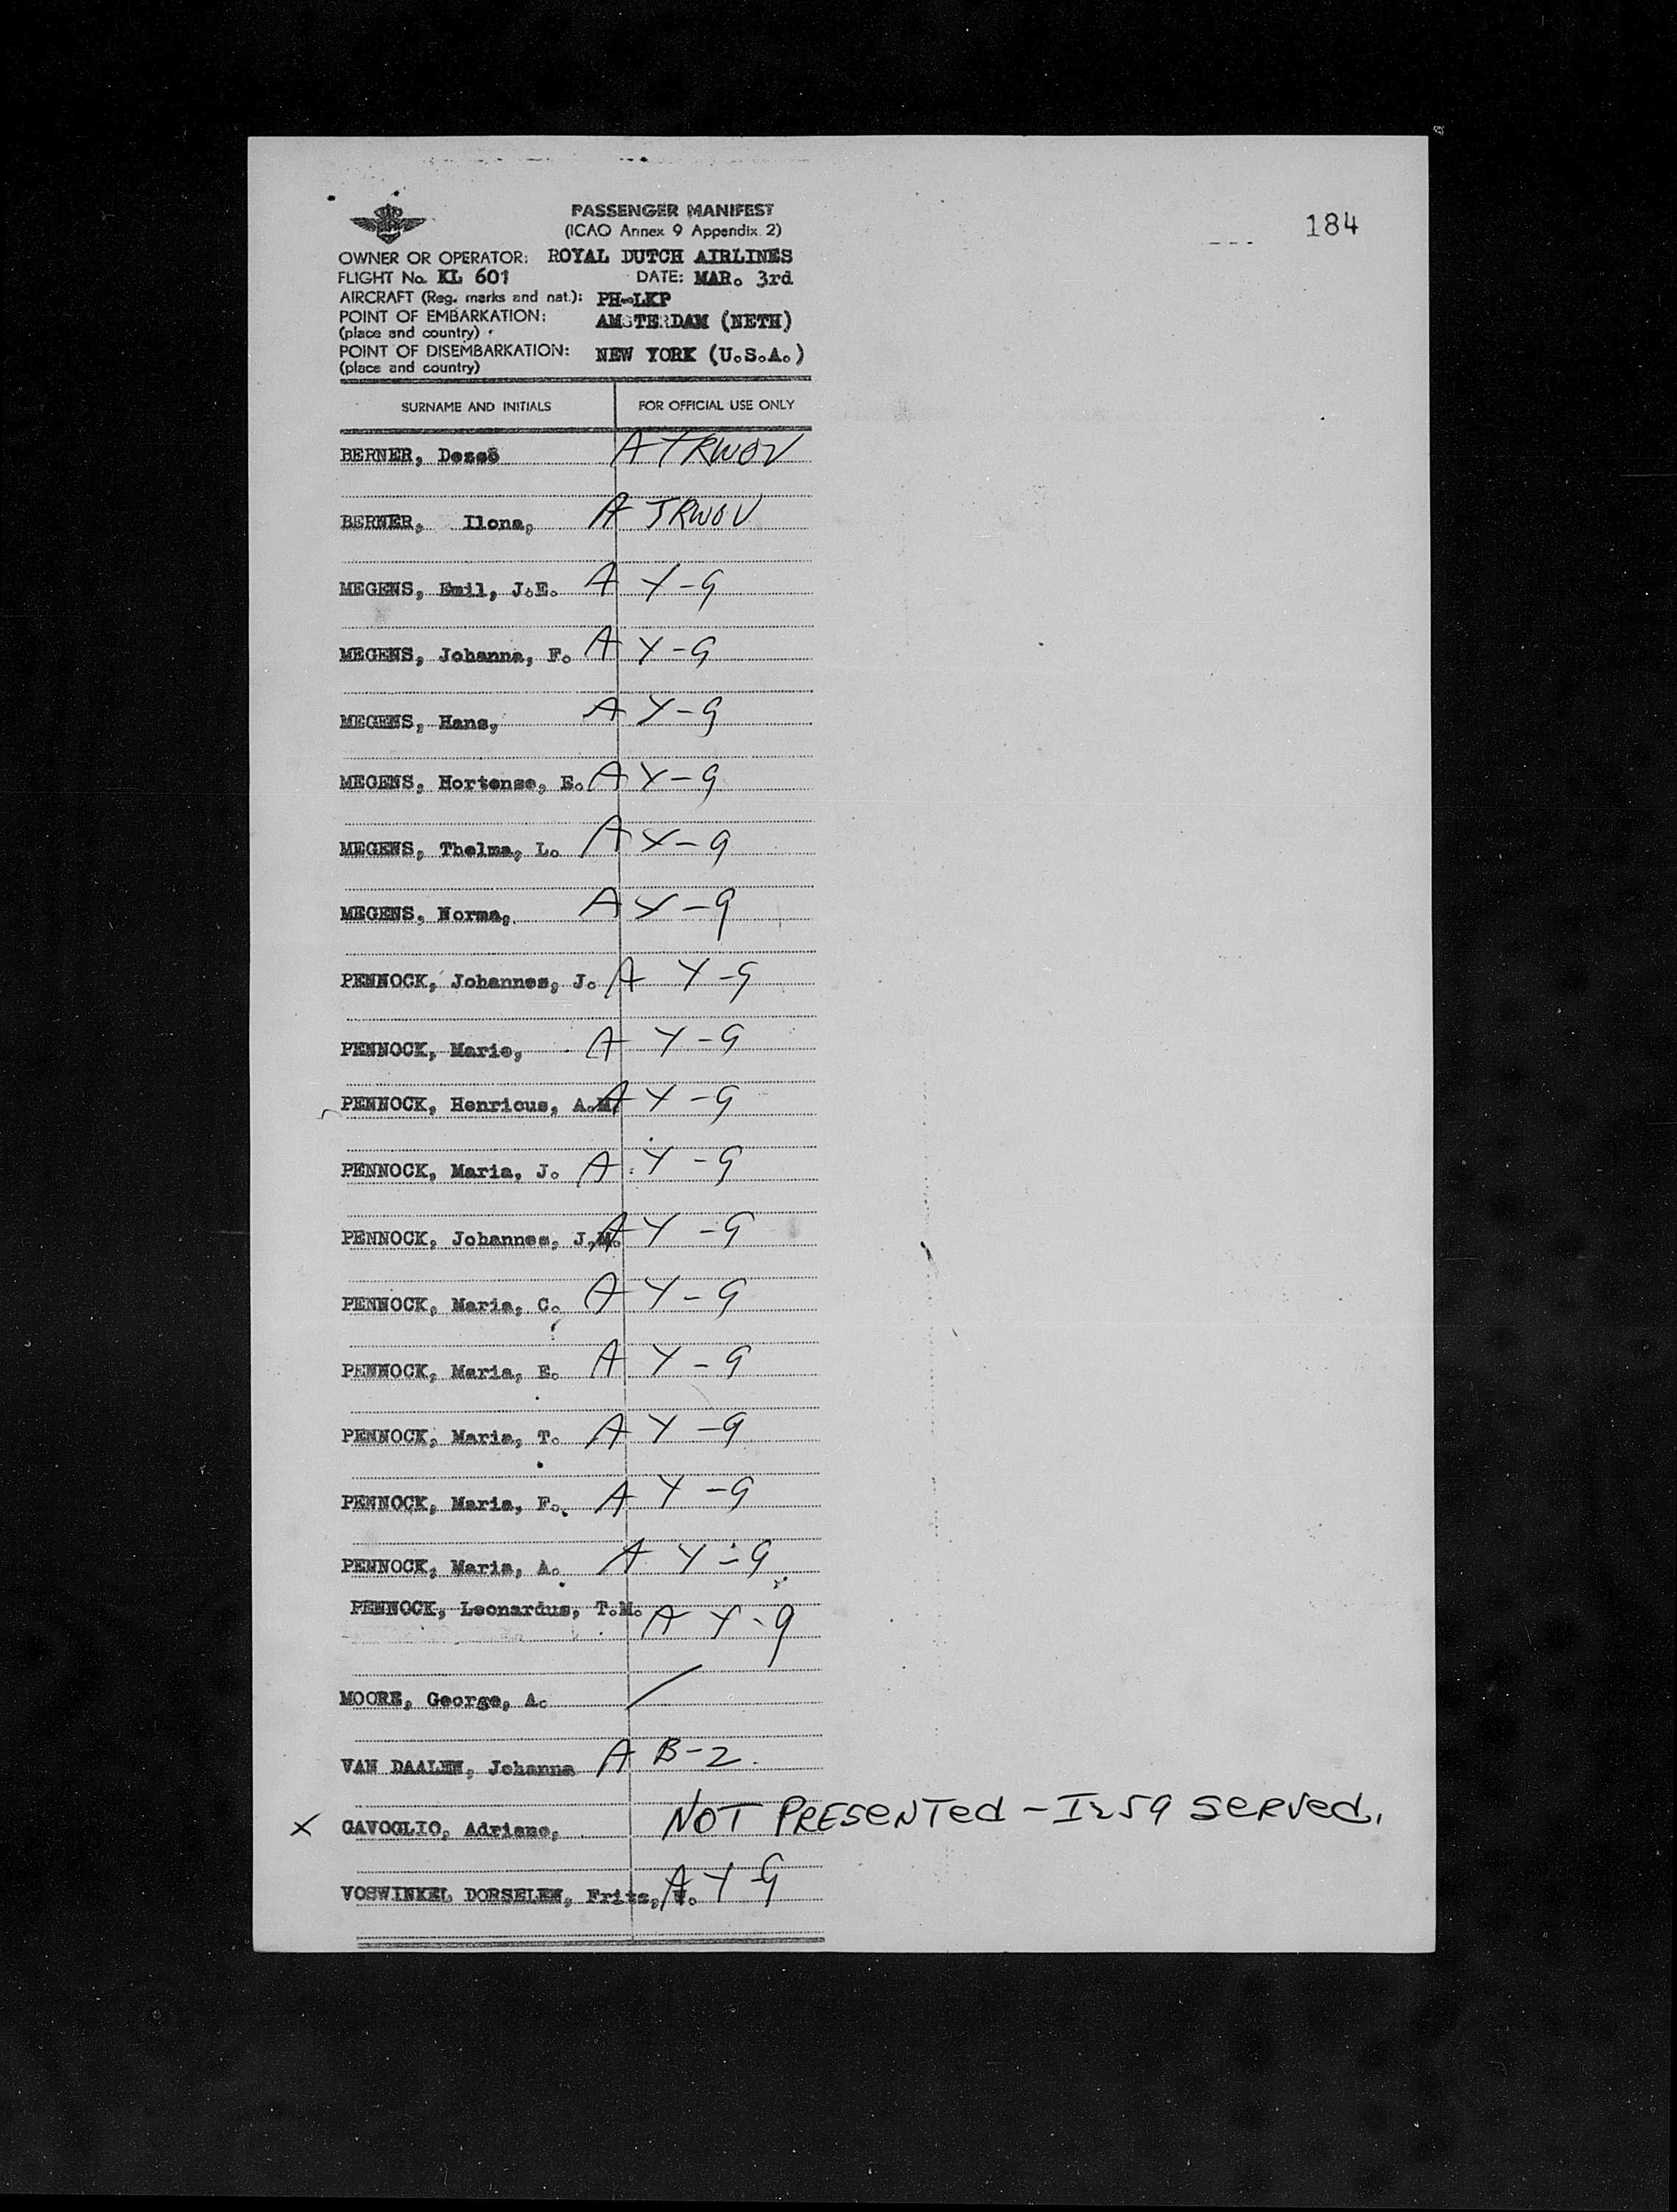 184
PASSENGER MANIFEST
(ICAO Annex 9 Appendix 2)
OWNER OR OPERATOR: ROYAL DUTCH AIRLINES
FLIGHT No. KL 601 DATE: MAR. 3rd
AIRCRAFT (Reg. marks and nat.): PH-LKP
POINT OF EMBARKATION: AMSTERDAM (NETH)
(place and country)
POINT OF DISEMBARKATION: NEW YORK (U.S.A.)
(place and country)
SURNAME AND INITIALS FOR OFFICIAL USE ONLY
BERNER, Dezsö A TRWOV
BERNER, Ilona, A TRWOV
MEGENS, Emil, J.E. A Y-9
MEGENS, Johanna, F. A Y-9
MEGENS, Hans, A Y-9
MEGENS, Hortense, E. A Y-9
MEGENS, Thelma, L. A Y-9
MEGENS, Norma, A Y-9
PENNOCK, Johannes, J. A Y-9
PENNOCK, Marie, A Y-9
PENNOCK, Henricus, A.M. A Y-9
PENNOCK, Maria, J. A Y-9
PENNOCK, Johannes, J.M. A Y-9
PENNOCK, Maria, C. A Y-9
PENNOCK, Maria, E. A Y-9
PENNOCK, Maria, T. A Y-9
PENNOCK, Maria, F. A Y-9
PENNOCK, Maria, A. A Y-9
PENNOCK, Leonardus, T.M. A Y-9
MOORE, George, A.
VAN DAALEN, Johanna A B-2.
X GAVOGLIO, Adriano, NOT PRESENTED - I259 SERVED.
VOSWINKEL DORSELEN, Fritz, A Y-9